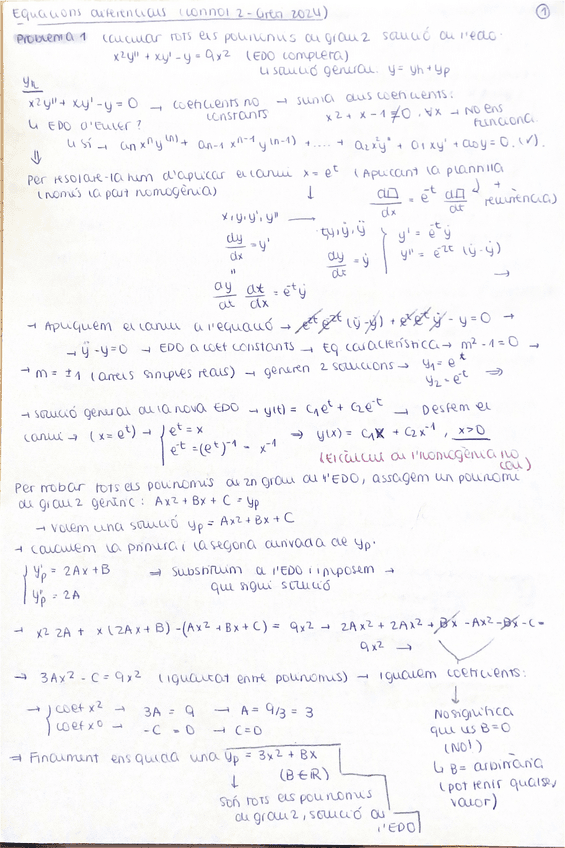 Equacions diferencials (control 2 - Gran 2024) ①
Problema 1 Calcular tots els polinomis de grau 2 solució de l'edo:
x²y'' + xy' - y = 9x² (EDO completa)
↳ solució general: y = yh + yp
yh
x²y'' + xy' - y = 0 → coeficients no constants → suma dels coeficients:
x² + x - 1 ≠ 0, ∀x → No ens funciona
↳ EDO d'Euler?
↳ sí → anxⁿy⁽ⁿ⁾ + an-1 xⁿ⁻¹y⁽ⁿ⁻¹⁾ + .... + a2x²y'' + a1xy' + a0y = 0. (✓).
⇓
Per resoldre-la hem d'aplicar el canvi x = e^t (Aplicant la plantilla
(només la part homogènia) d□/dx = e^-t d□/dt + recurrència)
x, y, y', y'' → t, y, ẏ, ÿ
dy/dx = y' dy/dt = ẏ { y' = e^-t ẏ
y'' = e^-2t (ÿ - ẏ)
"
dy/dt dt/dx = e^-t ẏ →
→ Apliquem el canvi a l'equació → e^2t e^-2t (ÿ - ẏ) + e^t e^-t ẏ - y = 0 →
→ ÿ - y = 0 → EDO a coef constants → Eq característica → m² - 1 = 0 →
→ m = ±1 (arrels simples reals) → generen 2 solucions → y1 = e^t
y2 = e^-t ⇒
→ Solució general de la nova EDO → y(t) = C1e^t + C2e^-t → Desfem el
canvi → (x = e^t) → { e^t = x
e^-t = (e^t)^-1 = x^-1 ⇒ y(x) = C1x + C2x^-1, x>0
(El càlcul de l'homogènia no cal)
Per trobar tots els polinomis de 2n grau de l'EDO, assagem un polinomi
de grau 2 genèric: Ax² + Bx + C = yp
→ Volem una solució yp = Ax² + Bx + C
→ Calculem la primera i la segona derivada de yp.
{ y'p = 2Ax + B ⇒ Substituïm a l'EDO i imposem →
y''p = 2A que sigui solució
→ x² 2A + x(2Ax + B) - (Ax² + Bx + C) = 9x² → 2Ax² + 2Ax² + Bx - Ax² - Bx - C =
9x² →
→ 3Ax² - C = 9x² (igualtat entre polinomis) → igualem coeficients:
→ { coef x² → 3A = 9 → A = 9/3 = 3
coef x⁰ → -C = 0 → C = 0
No significa
que us B=0
(NO!)
↳ B = arbitrària
(pot tenir qualsev.
valor)
⇒ Finalment ens queda una yp = 3x² + Bx
(B ∈ ℝ)
↓
Són tots els polinomis
de grau 2, solució de
l'EDO